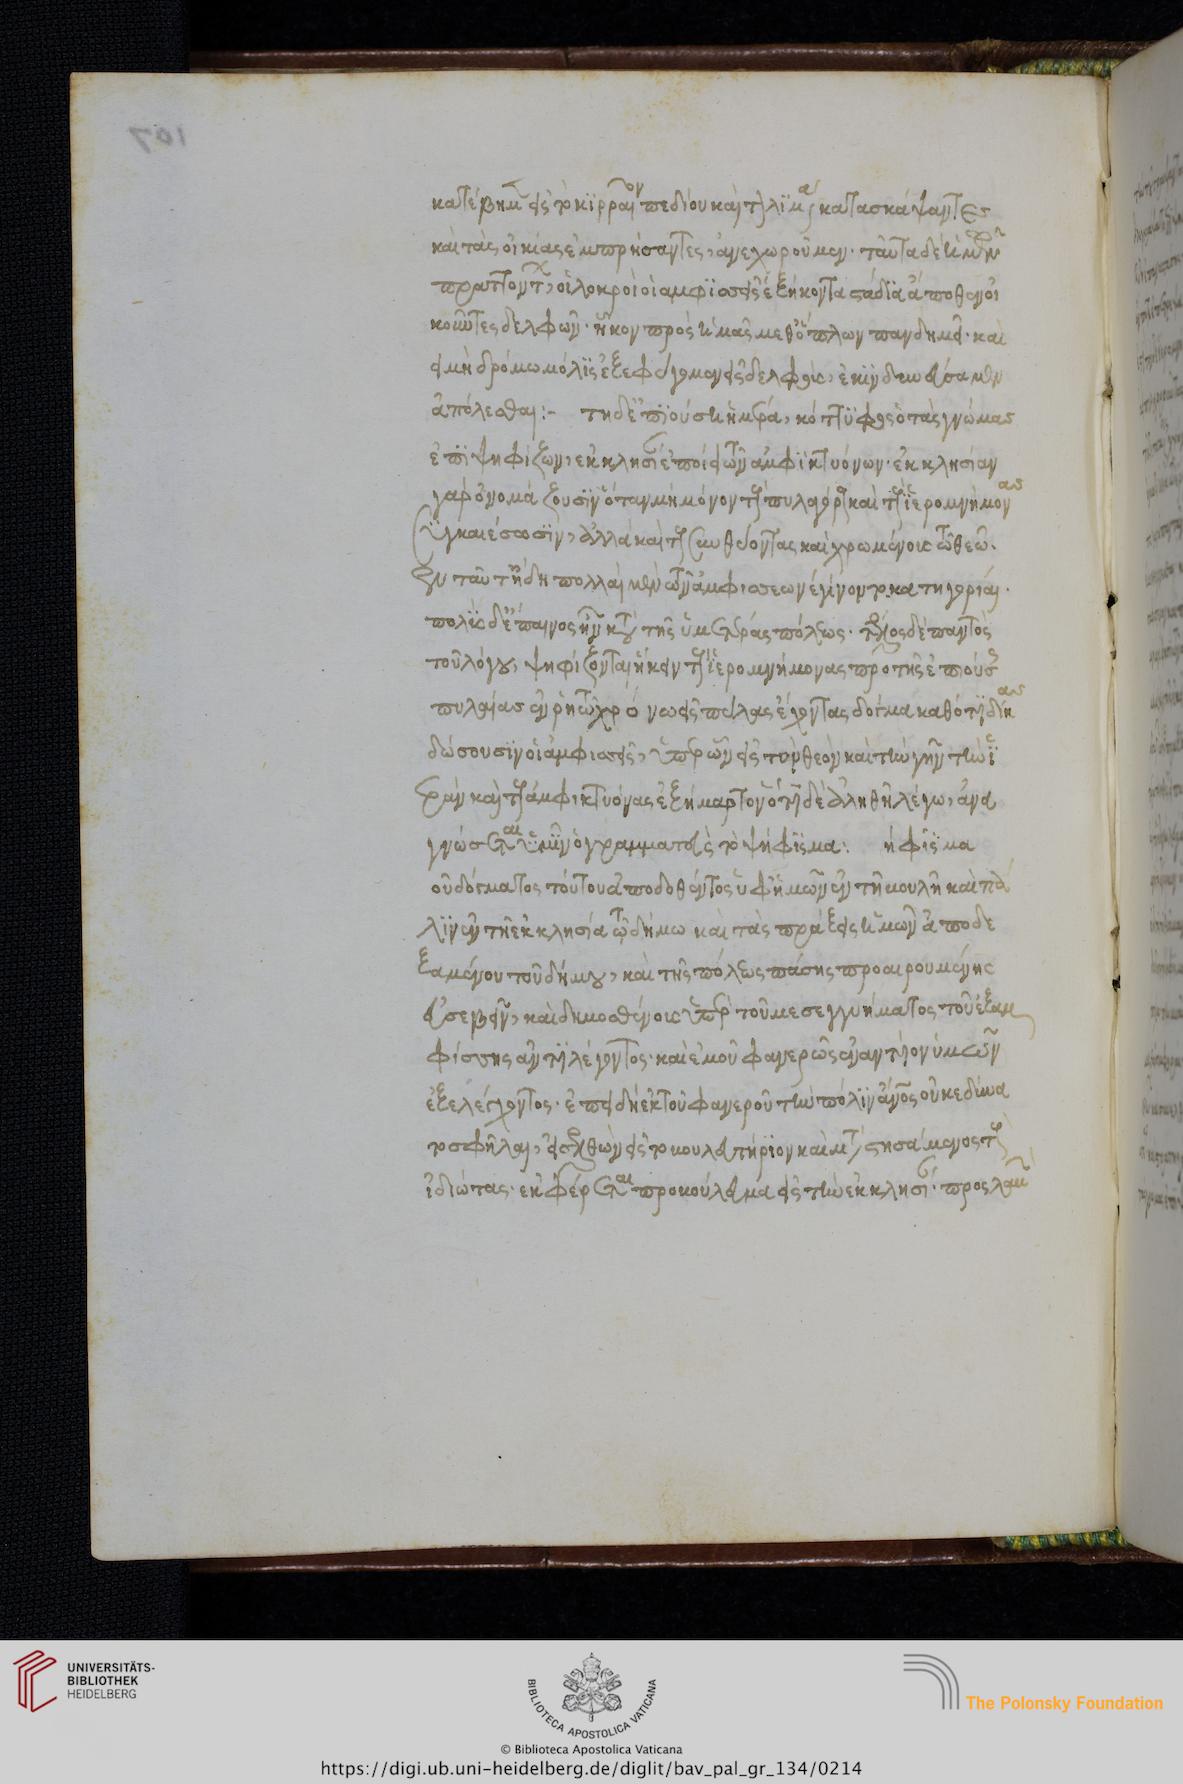 107
κατέβημεν εἰς τὸ κιρραῖον πεδίον καὶ τὸν λιμένα κατασκάψαντες
καὶ τὰς οἰκίας ἐμπρήσαντες, ἀνεχωροῦμεν· ταῦτα δὲ ἡμῶν
πραττόντων, οἱ λοκροὶ οἱ ἀμφισσεῖς ἑξήκοντα στάδια ἄποθεν οἰ
κοῦντες δελφῶν· ἧκον πρὸς ἡμᾶς μεθ' ὅπλων πανδημεί· καὶ
εἰ μὴ δρόμω μόλις ἐξεφύγομεν εἰς δελφοὺς, ἐκινδυνεύσαμεν
ἀπόλεσθαι:- τῆ δὲ ἐπιούση ἡμέρα, κόττυφος ὁ τὰς γνώμας
ἐπιψηφίζων, ἐκκλησίαν ἐποίει τῶν ἀμφικτυόνων· ἐκκλησίαν
γὰρ ὀνομάζουσιν ὅταν μὴ μόνον τοὺς πυλαγόρους καὶ τοὺς ἱερομνήμονας
συγκαλέσωσιν, ἀλλὰ καὶ τοὺς συνθύοντας καὶ χρωμένους τῶ θεῶ.
ἐνταῦθ' ἤδη πολλαὶ μὲν τῶν ἀμφισσέων ἐγίνοντο κατηγορίαι·
πολὺς δὲ ἔπαινος ἦν κατὰ τῆς ὑμετέρας πόλεως· τέλος δὲ παντὸς
τοῦ λόγου, ψηφίζονται ἥκειν τοὺς ἱερομνήμονας πρὸ τῆς ἐπιούσης
πυλαίας ἐν ῥητῶ χρόνω εἰς πύλας ἔχοντας δόγμα καθότι δίκας
δώσουσιν οἱ ἀμφισσεῖς, ὑπὲρ ὧν εἰς τὸν θεὸν καὶ τὴν γῆν τὴν ἱε
ρὰν καὶ τοὺς ἀμφικτυόνας ἐξήμαρτον ὅτι δὲ ἀληθῆ λέγω, ἀνα
γνώσεται ὑμῖν ὁ γραμματεὺς τὸ ψήφισμα: ήφισμα
οῦ δόγματος τούτου ἀποδοθέντος ὑφ' ἡμῶν ἐν τῆ βουλῆ καὶ πά
λιν ἐν τῆ ἐκκλησία τῶ δήμω καὶ τὰς πράξεις ἡμῶν ἀποδε
ξαμένου τοῦ δήμου, καὶ τῆς πόλεως πάσης προαιρουμένης
εὐσεβεῖν, καὶ δημοσθένους ὑπὲρ τοῦ μεσεγγυήματος τοῦ ἐξ ἀμ
φίσσης ἀντιλέγοντος· καὶ ἐμοῦ φανερῶς ἐναντίον ὑμῶν
ἐξελέγχοντος· ἐπειδὴ ἐκ τοῦ φανεροῦ τὴν πόλιν ἄνθρωπος οὐκ ἐδύνα
το σφῆλαι, εἰσελθὼν εἰς τὸ βουλευτήριον καὶ μεταστησάμενος τοὺς
ἰδιώτας· ἐκφέρεται προβούλευμα εἰς τὴν ἐκκλησίαν· προσλαβὼν
UNIVERSITÄTS-
BIBLIOTHEK
HEIDELBERG
BIBLIOTECA APOSTOLICA VATICANA
The Polonsky Foundation
© Biblioteca Apostolica Vaticana
https://digi.ub.uni-heidelberg.de/diglit/bav_pal_gr_134/0214